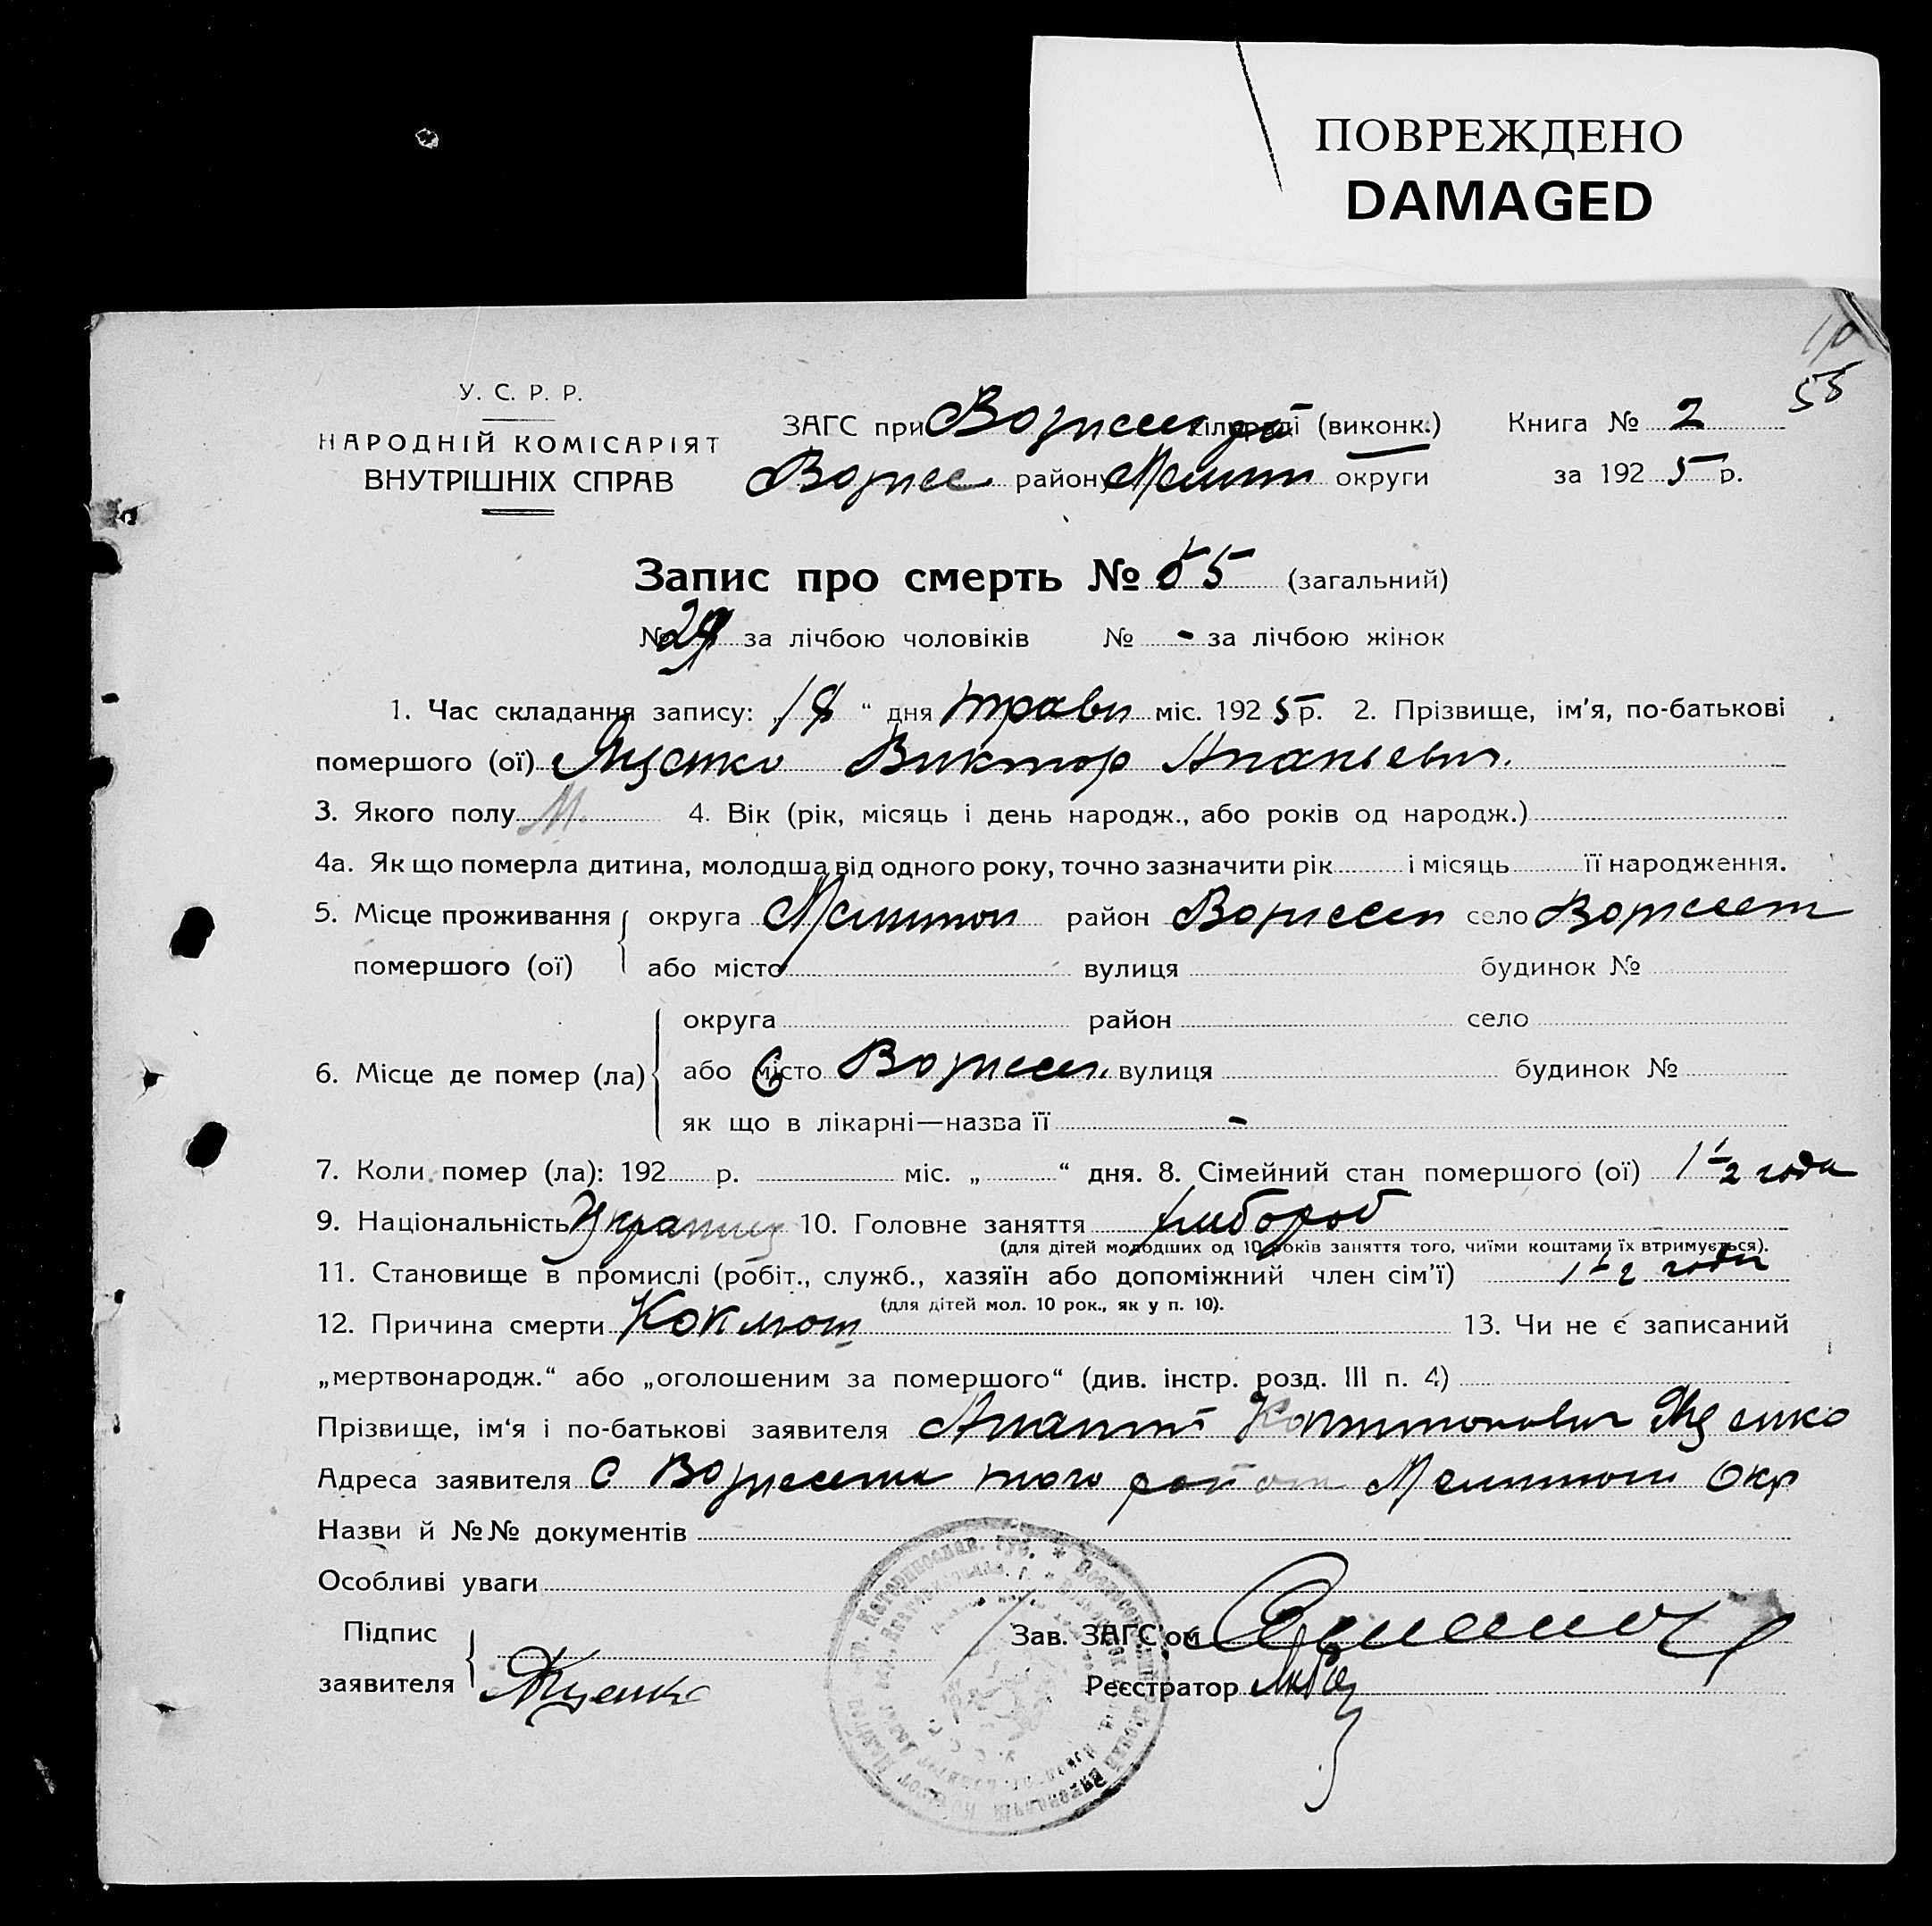 ПОВРЕЖДЕНО
DAMAGED
55
У. С. Р. Р.
НАРОДНІЙ КОМІСАРІЯТ
ВНУТРІШНІХ СПРАВ
ЗАГС при сільраді (виконк.) Книга № 2
району Мелит округи за 1925 р.
Запис про смерть № 55 (загальний)
№ 29 за лічбою чоловіків № - за лічбою жінок
1. Час складання запису: „18“ дня травн міс. 1925 р. 2. Прізвище, ім'я, по-батькові
помершого (ої) Яценко Виктор Ананьевич.
3. Якого полу М. 4. Вік (рік, місяць і день народж., або років од народж.)
4а. Як що померла дитина, молодша від одного року, точно зазначити рік і місяць її народження.
5. Місце проживання округа Мелитоп район село
помершого (ої) або місто вулиця будинок №
округа район село
6. Місце де помер (ла) або місто вулиця будинок №
як що в лікарні—назва її -
7. Коли помер (ла): 192 р. міс. „ “ дня. 8. Сімейний стан помершого (ої) 1 1/2 года
9. Національність Украинец 10. Головне заняття хлебороб
(для дітей молодших од 10 років заняття того, чиїми коштами їх втримується).
11. Становище в промислі (робіт., служб., хазяїн або допоміжний член сім'ї) 1 1/2 года
(для дітей мол. 10 рок., як у п. 10).
12. Причина смерти Коклюш 13. Чи не є записаний
„мертвонародж.“ або „оголошеним за помершого“ (див. інстр. розд. III п. 4)
Прізвище, ім'я і по-батькові заявителя Яценко
Адреса заявителя С того Мелитоп Окр
Назви й №№ документів
Особливі уваги
Підпис
заявителя Яценко
Зав. ЗАГС'ом
Реєстратор